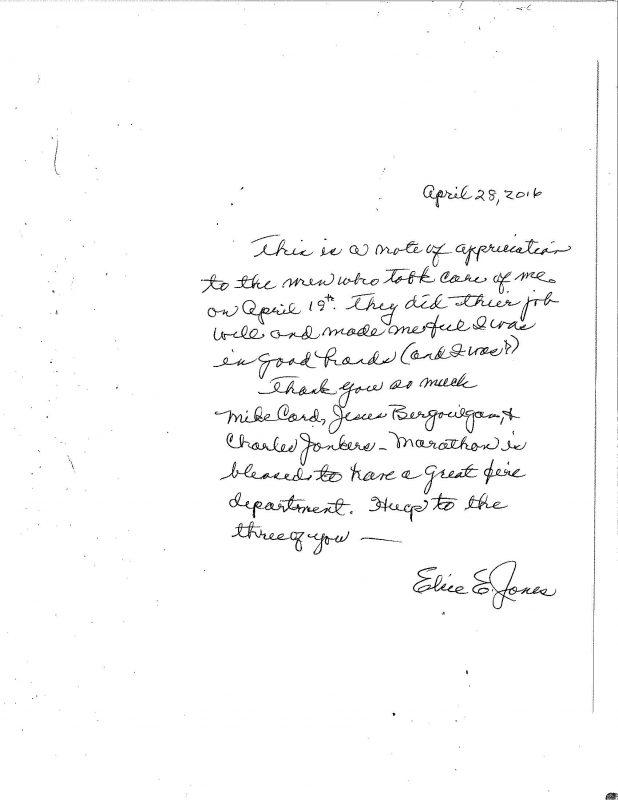 April 28, 2016
This is a note of appriciation
to the men who took care of me
on April 19th. They did thier job
well and made me feel I was
in good hands (and I was!)
Thank you so much
Mike Card, Jesus &
Charles Jonkers - Marathon is
blessed to have a great fire
department. Hugs to the
three of you —
Elsie E. Jones